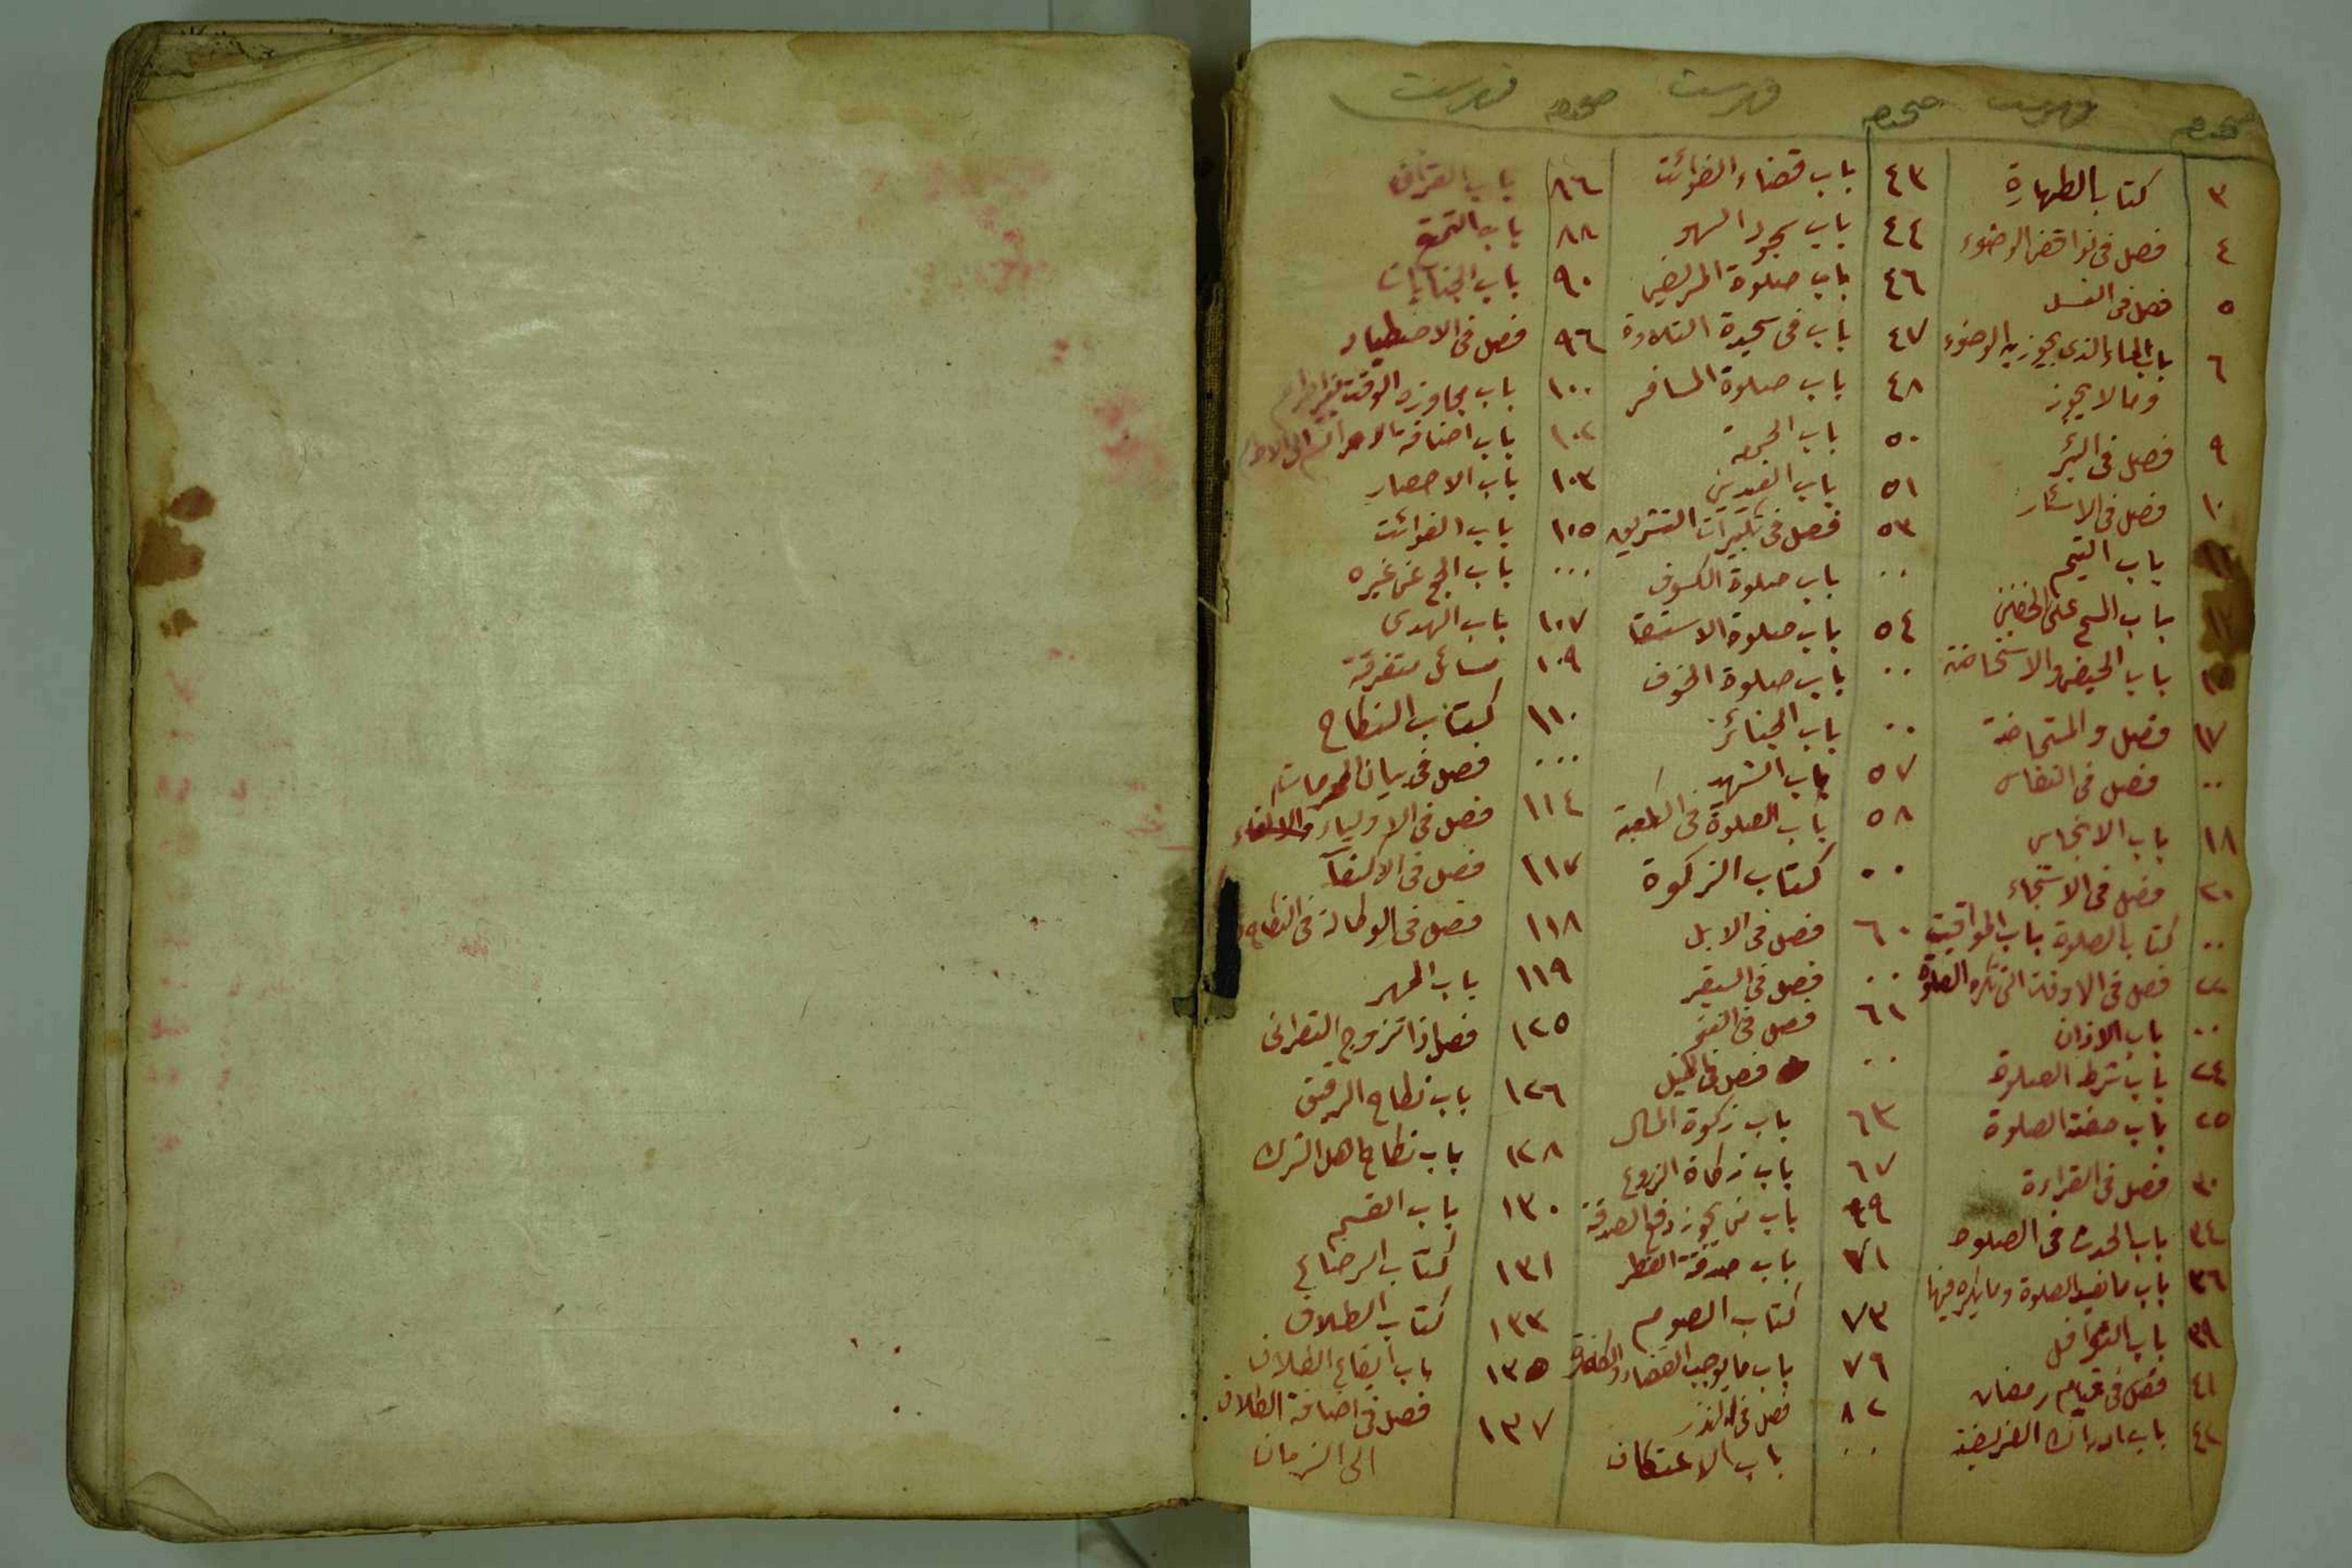 صحيفه فهرست صحيفه فهرست صحيفه فهرست
٣ كتاب الطهارة
٤ فصل فى نواقض الوضوء
٥ فصل فى الغسل
٦ باب الماء الذى يجوز به الوضوء
وما لا يجوز
٩ فصل فى البئر
١٠ فصل فى الاسئار
باب التيمم
باب المسح على الخفين
باب الحيض والاستحاضة
١٧ فصل و المستحاضة
٠٠ فصل فى النفاس
١٨ باب الانجاس
٢٠ فصل فى الاستنجاء
٠٠ كتاب الصلوة باب المواقيت
٢٢ فصل فى الاوقات التى تكره الصلوة
٠٠ باب الاذان
٢٤ باب شرط الصلوة
٢٥ باب صفة الصلوة
٣٠ فصل فى القراءة
٣٤ باب الحدث فى الصلوة
٣٦ باب ما يفسد الصلوة وما يكره فيها
٣٩ باب النوافل
٤١ فصل فى قيام رمضان
٤٢ باب ادراك الفريضة
٤٣ باب قضاء الفوائت
٤٤ باب سجود السهو
٤٦ باب صلوة المريض
٤٧ باب فى سجدة التلاوة
٤٨ باب صلوة المسافر
٥٠ باب الجمعة
٥١ باب العيدين
٥٣ فصل فى تكبيرات التشريق
٠٠ باب صلوة الكسوف
٥٤ باب صلوة الاستسقا
٠٠ باب صلوة الخوف
٠٠ باب الجنائز
٥٧ باب الشهيد
٥٨ باب الصلوة فى الكعبة
٠٠ كتاب الزكوة
٦٠ فصل فى الابل
٠٠ فصل فى البقر
٦١ فصل فى الغنم
٠٠ فصل فى الخيل
٦٣ باب زكوة المال
٦٧ باب زكاة الزروع
٦٩ باب من يجوز دفع الصدقة
٧١ باب صدقة الفطر
٧٣ كتاب الصوم
٧٩ باب ما يوجب القضاء والكفارة
٨٢ فصل فى النذر
٠٠ باب الاعتكاف
٨٦ باب القران
٨٨ باب التمتع
٩٠ باب الجنايات
٩٦ فصل فى الاصطياد
١٠٠ باب مجاوزة الوقت بغير احرام
١٠٢ باب اضافة الاحرام الى الاحرام
١٠٣ باب الاحصار
١٠٥ باب الفوائت
٠٠٠ باب الحج عن غيره
١٠٧ باب الهدى
١٠٩ مسائل متفرقة
١١٠ كتاب النكاح
٠٠٠ فصل فى بيان المحرمات
١١٤ فصل فى الاولياء والاكفاء
١١٧ فصل فى الاكفآ
١١٨ فصل فى الوكالة فى النكاح
١١٩ باب المهر
١٢٥ فصل اذا تزوج النصرانى
١٢٦ باب نكاح الرقيق
١٢٨ باب نكاح اهل الشرك
١٣٠ باب القسم
١٣١ كتاب الرضاع
١٣٣ كتاب الطلاق
١٣٥ باب ايقاع الطلاق
١٣٧ فصل فى اضافة الطلاق
الى الزمان